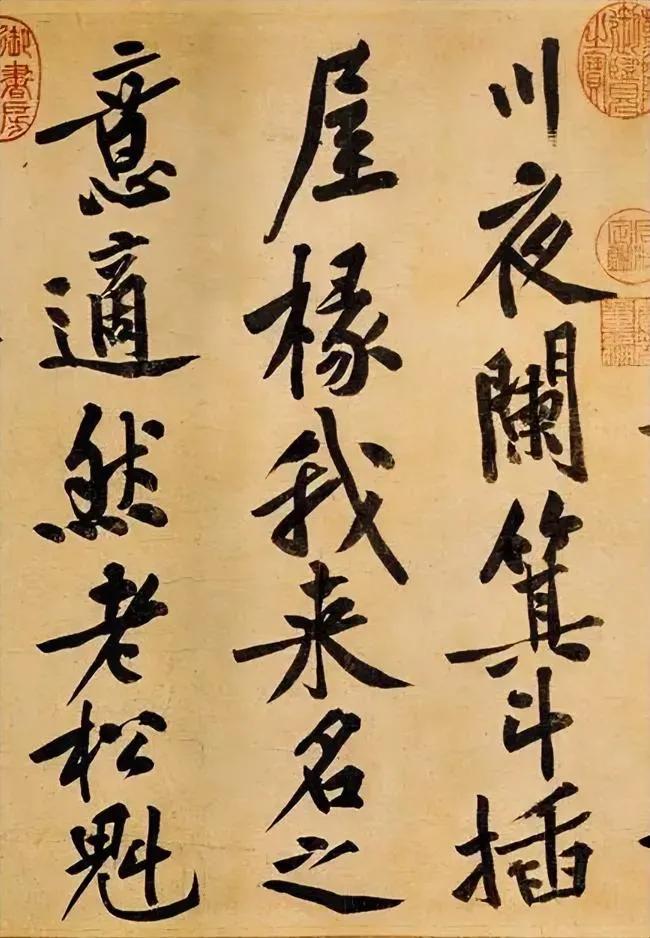 川夜闌箕斗插
屋椽我来名之
意適然老松魁
御書房